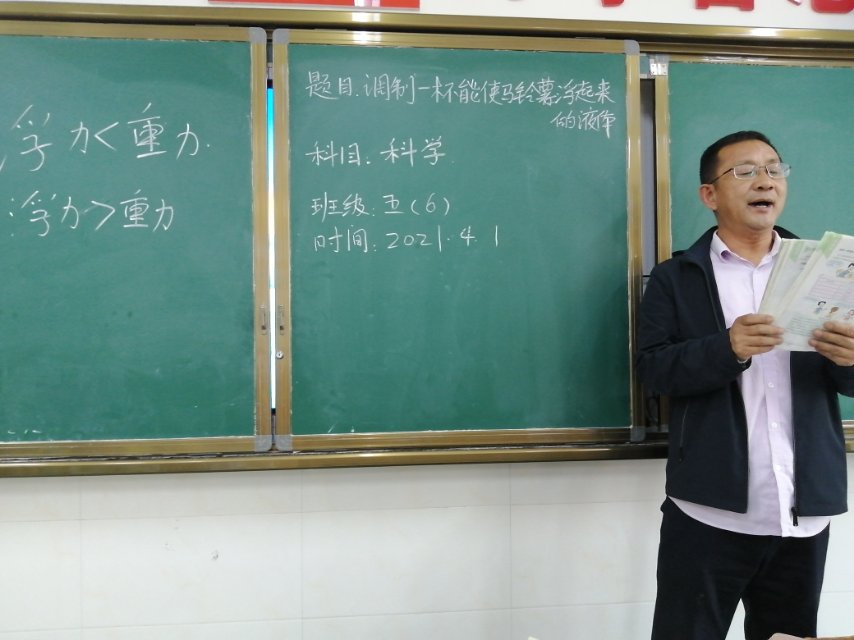 浮力<重力.
:浮力>重力
题目.调制一杯能使马铃薯浮起来
的液体
科目.科学.
班级:五(6)
时间:2021.4.1